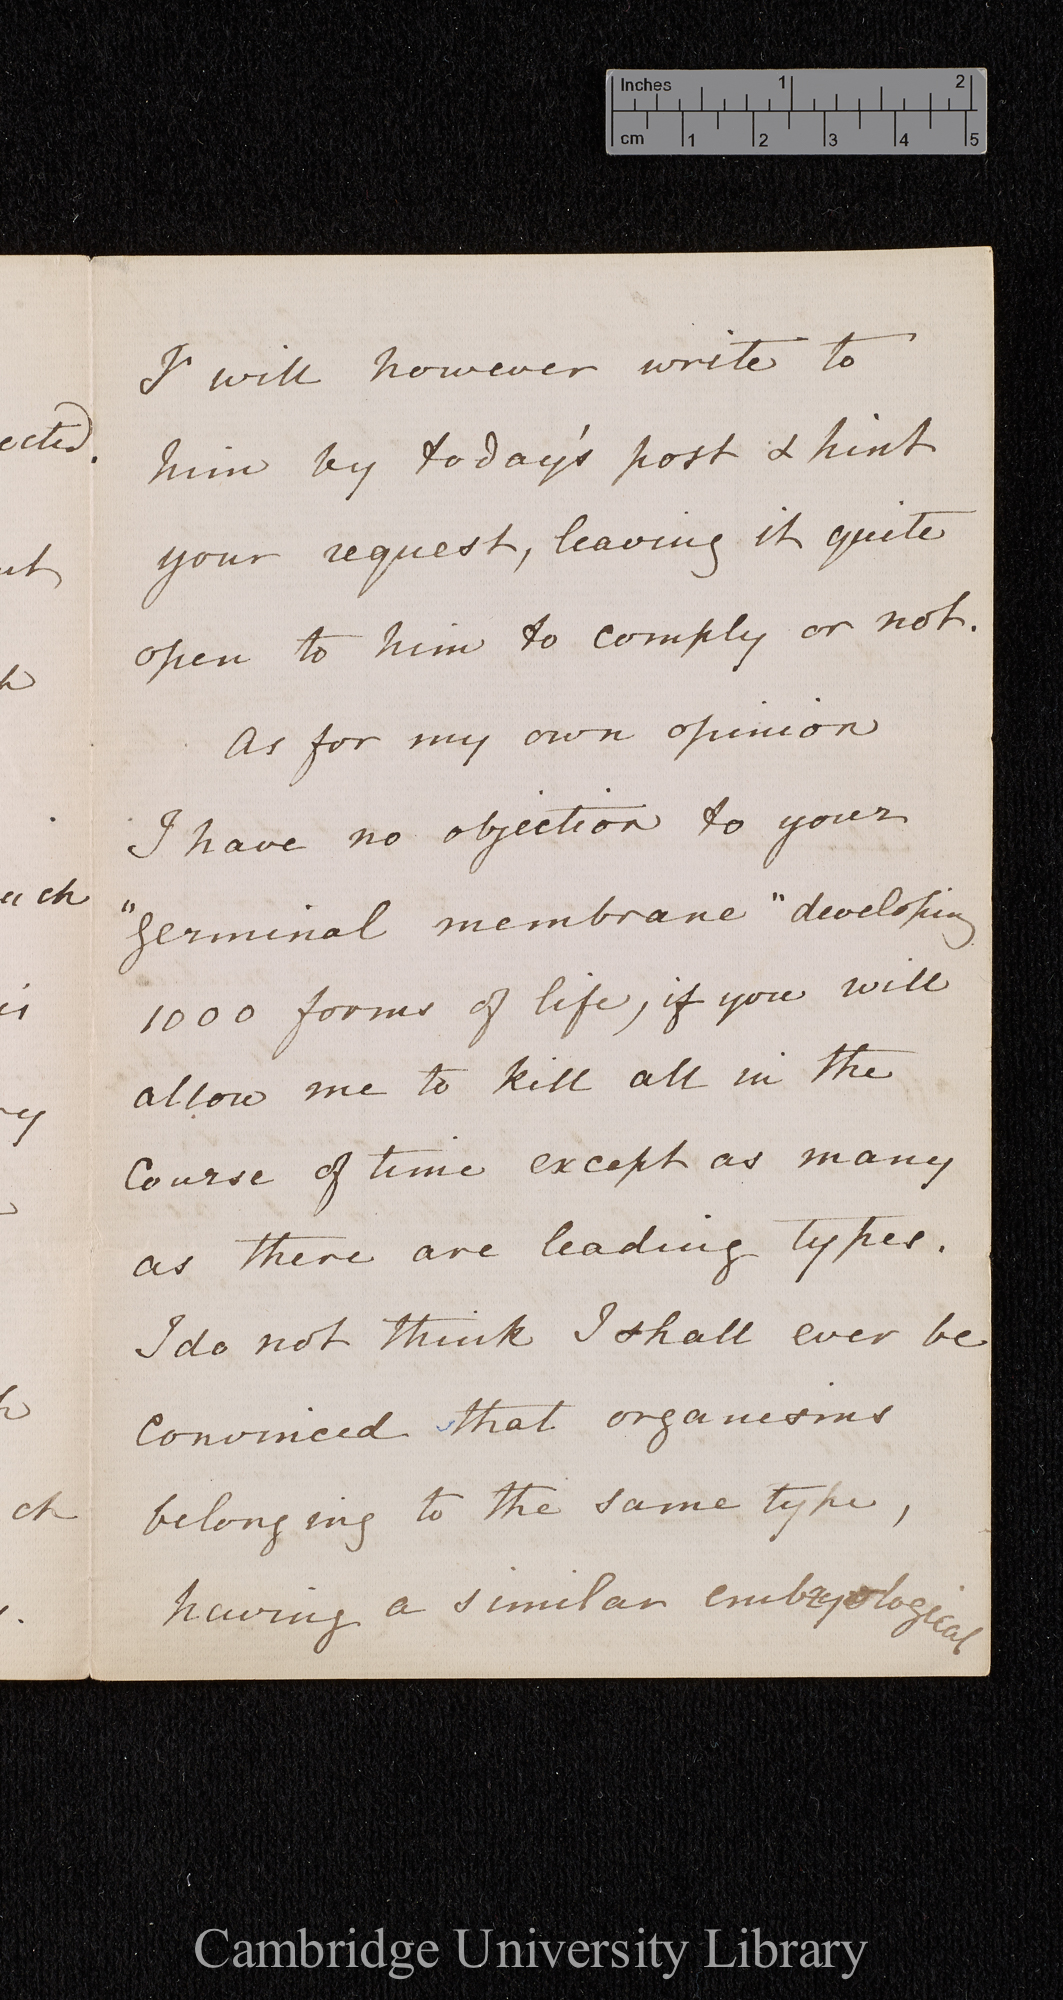 Inches 1 2
cm 1 2 3 4 5
I will however write to
him by today's post & hint
your request, leaving it quite
open to him to comply or not.
As for my own opinion
I have no objection to your
"germinal membrane" developing
1000 forms of life, if you will
allow me to kill all in the
course of time except as many
as there are leading types.
I do not think I shall ever be
convinced that organisms
belonging to the same type,
having a similar embryological
Cambridge University Library